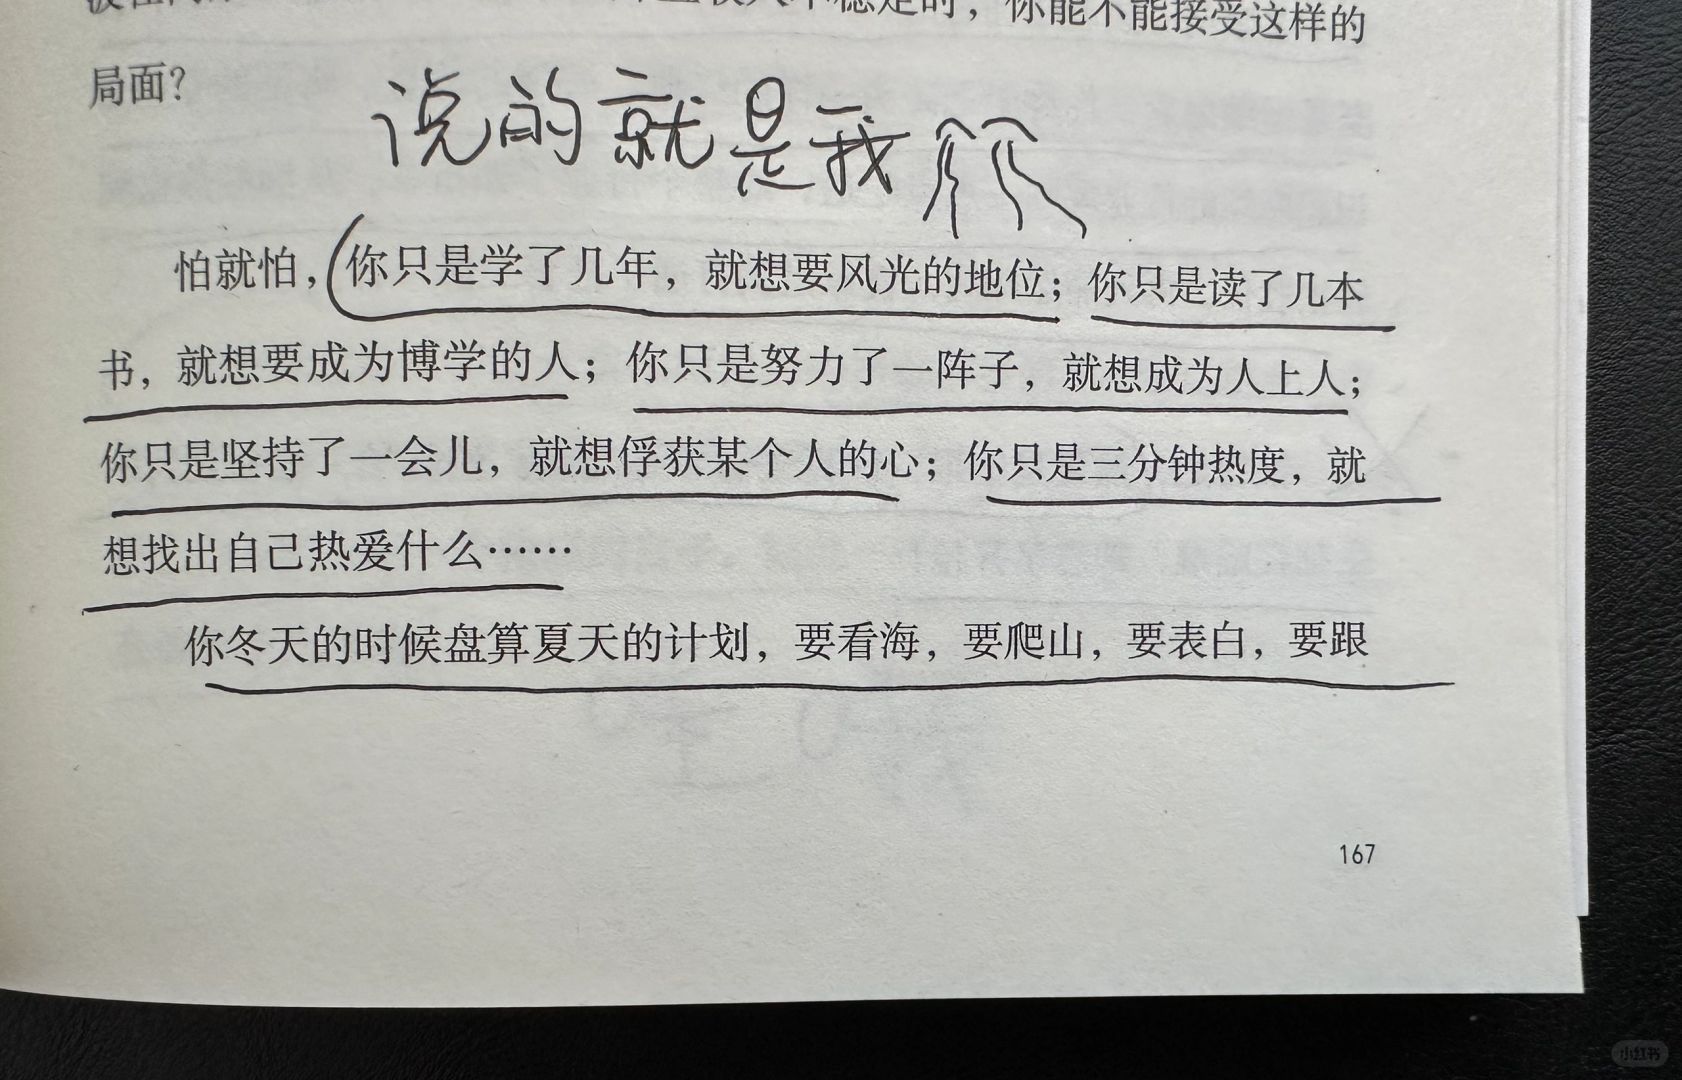 定的，你能不能接受这样的
局面？
说的就是我
怕就怕，你只是学了几年，就想要风光的地位；你只是读了几本
书，就想要成为博学的人；你只是努力了一阵子，就想成为人上人；
你只是坚持了一会儿，就想俘获某个人的心；你只是三分钟热度，就
想找出自己热爱什么……
你冬天的时候盘算夏天的计划，要看海，要爬山，要表白，要跟
167
小红书